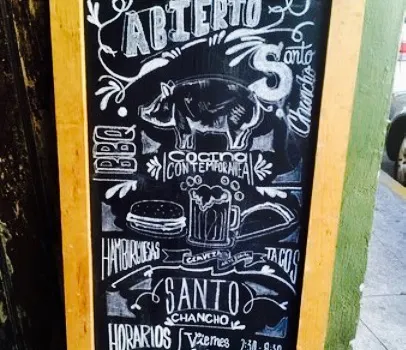 ABIERTO
Santo
Chancho
BBQ
COCINA
CONTEMPORANEA
HAMBURGUESAS
CERVEZA ARTESANAL
TACOS
SANTO
CHANCHO
HORARIOS
Viernes 7:30-8:30